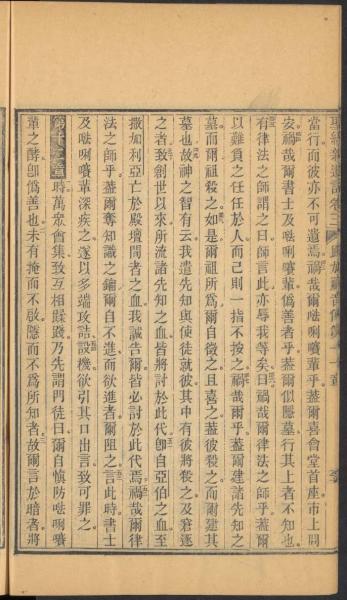 聖經新遺詔卷三
路加福音傳第十一章
當行而彼亦不可遺焉禍哉爾𠵽唎㘔輩乎蓋爾喜會堂首座市上問
安禍哉爾書士及𠵽唎㘔輩偽善者乎蓋爾似隱墓行其上者不知也
有律法之師謂之曰師言此亦辱我等矣曰禍哉爾律法之師乎蓋爾
以難負之任任於人而己則一指不按之禍哉爾乎蓋爾建諸先知之
墓而爾祖殺之如是爾祖所為爾自徵之且喜之蓋彼殺之而爾建其
墓也故神之智有云我遣先知與使徒就彼其中有彼將殺之及窘逐
之者致創世以來所流諸先知之血者將討於此代卽自亞伯之血至
撒加利亞亡於殿壇間者之血我誠告爾皆必討於此代焉禍哉爾律
法之師乎蓋爾奪知識之鑰爾自不進而欲進者爾阻之言此時書士
及𠵽唎㘔輩深疾之遂以多端攻詰設機欲引其口出言致可罪之
第十二章時萬眾會集致互相蹂踐乃先謂門徒曰爾自慎防𠵽唎㘔
輩之酵卽偽善也未有掩而不啟隱而不為所知者故爾言於暗者將